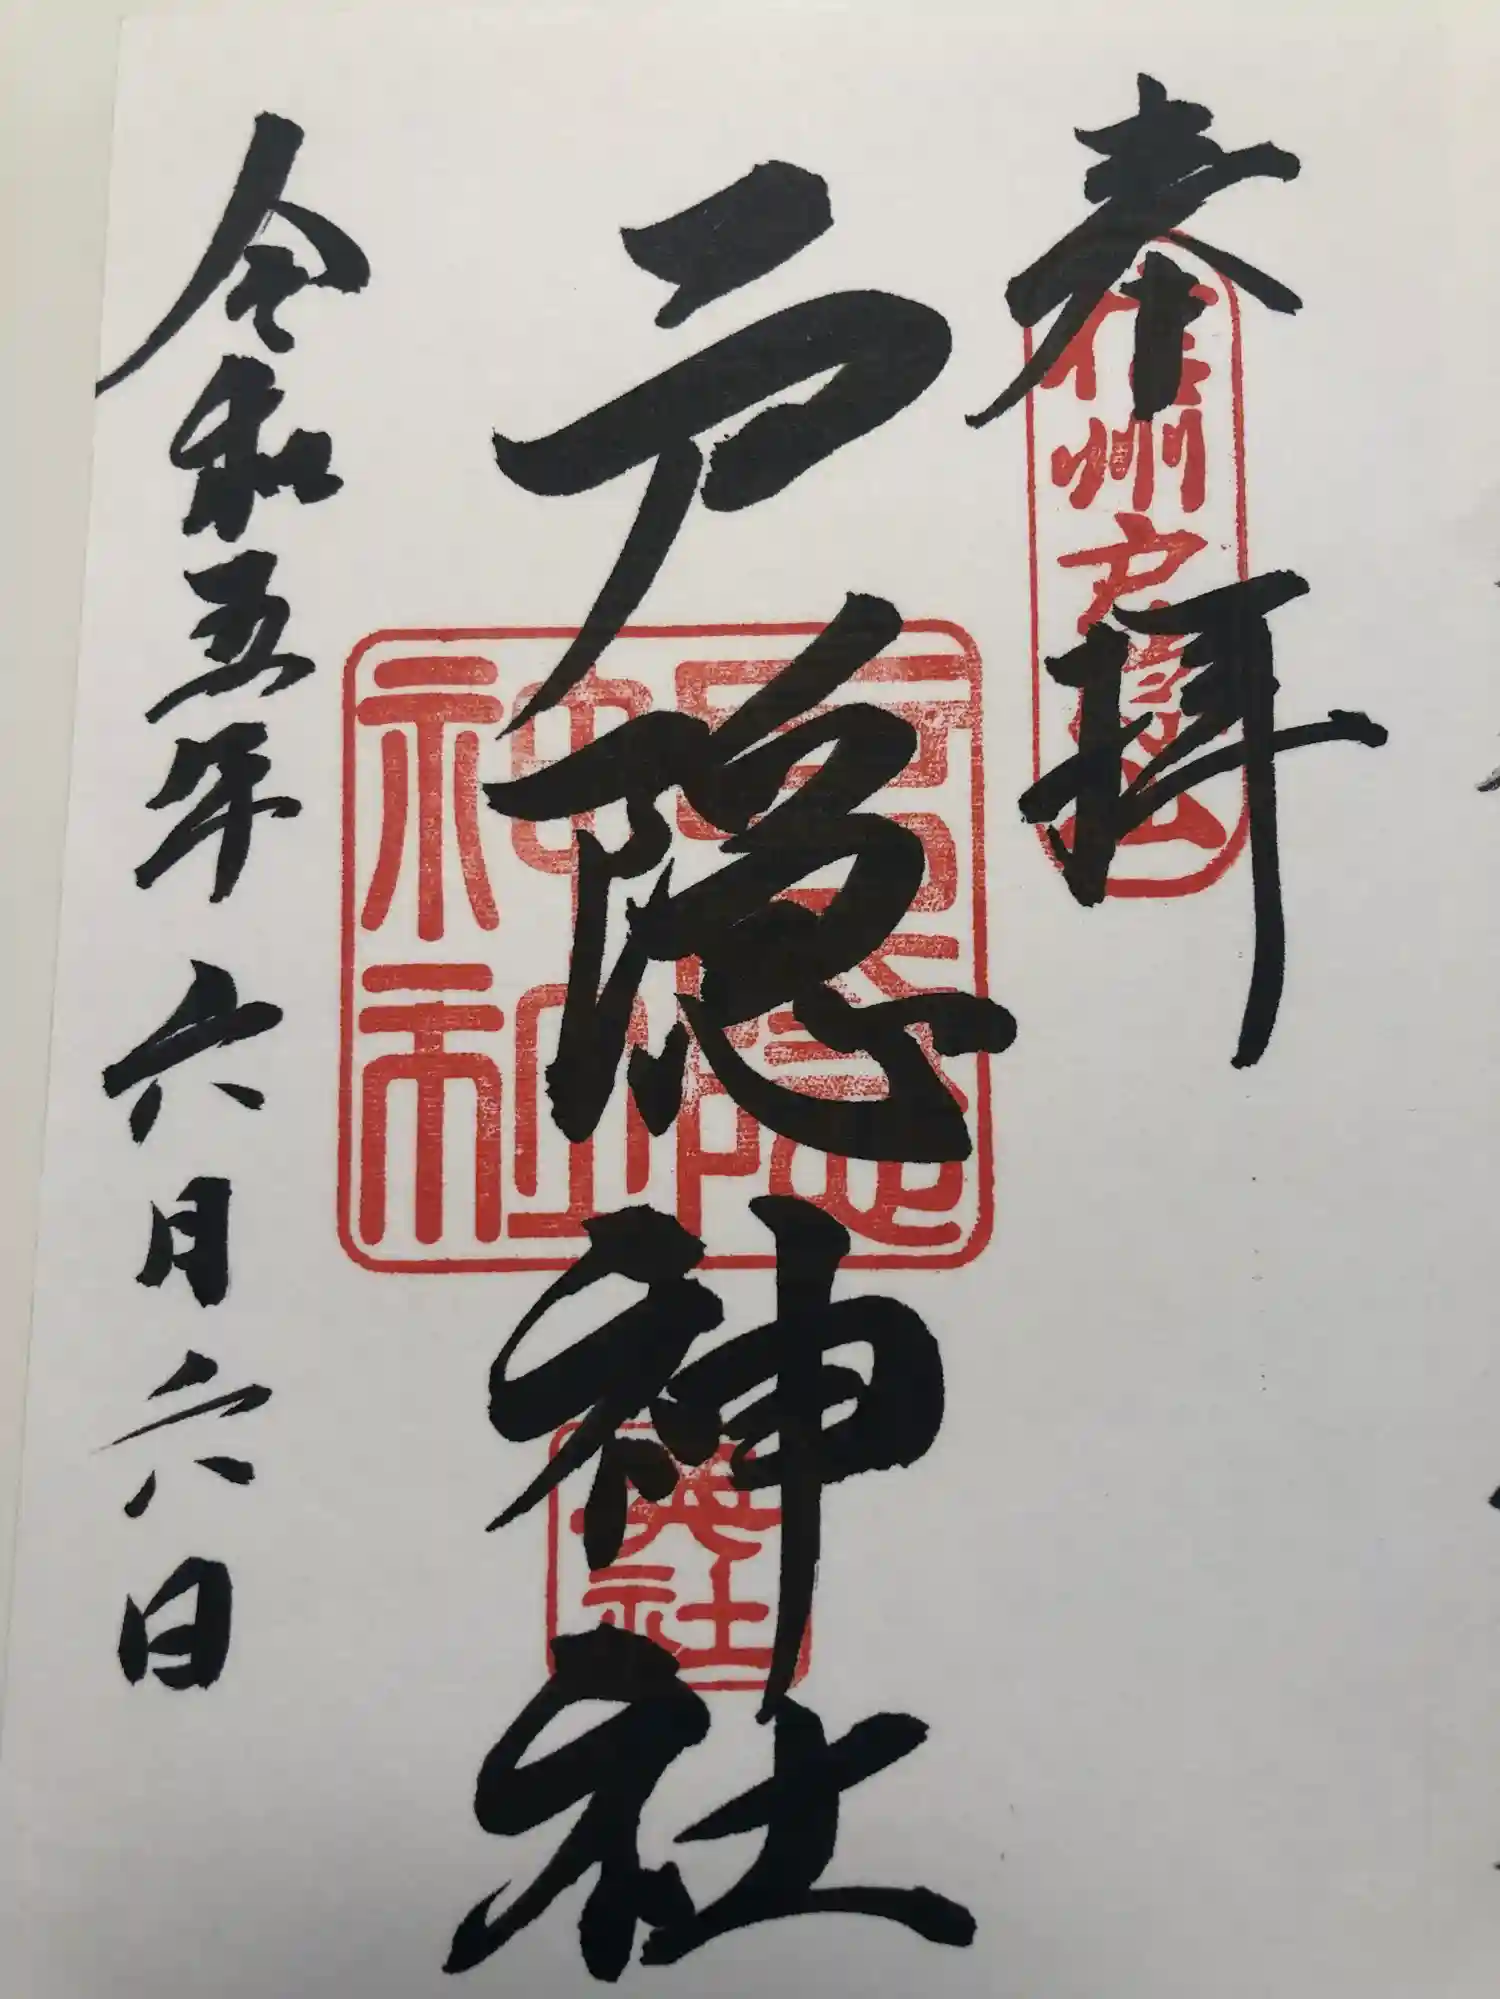 奉拝
信州戸隠山
戸隠神社
戸隠
神社
奥社
令和五年六月六日